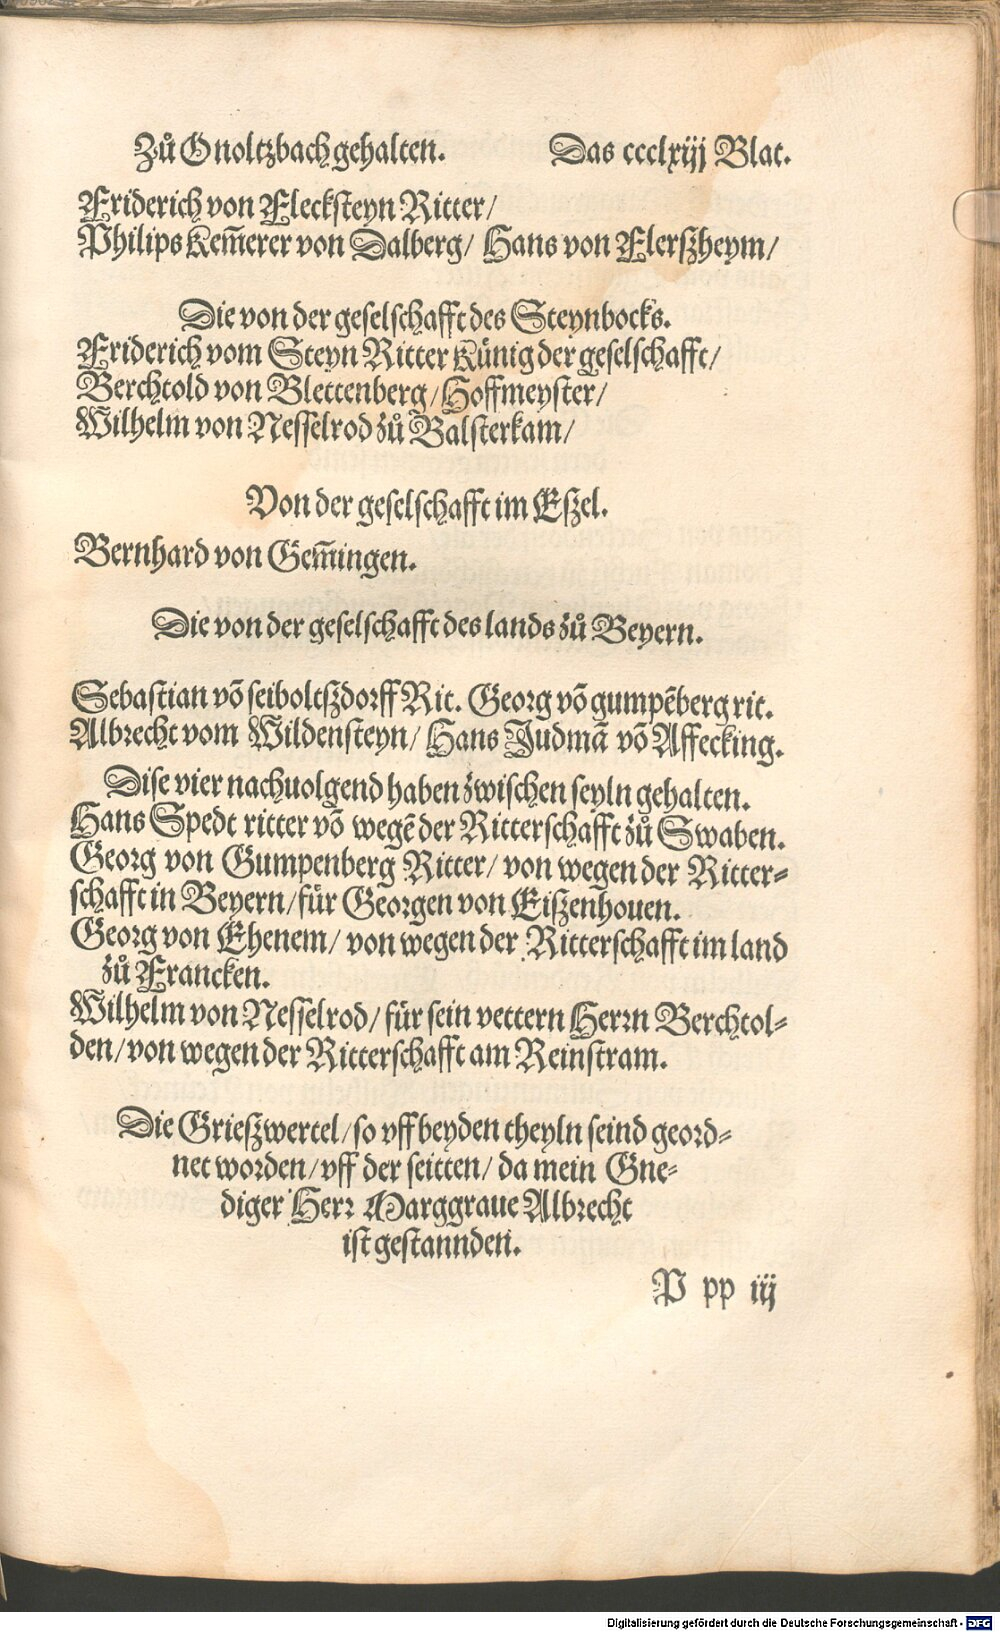 Zů Onoltzbach gehalten. Das ccclxiij Blat.
Friderich von Fleckſteyn Ritter/
Philips Kem̄erer von Dalberg/ Hans von Flerſzheym/
Die von der geſelſchafft des Steynbocks.
Friderich vom Steyn Ritter Künig der geſelſchafft/
Berchtold von Blettenberg/ Hoffmeyſter/
Wilhelm von Neſſelrod zů Balſterkam/
Von der geſelſchafft im Eſzel.
Bernhard von Gem̄ingen.
Die von der geſelſchafft des lands zů Beyern.
Sebaſtian vō ſeiboltſzdorff Rit. Georg vō gumpēberg rit.
Albrecht vom Wildenſteyn/ Hans Judmā vō Affecking.
Diſe vier nachuolgend haben zwiſchen ſeyln gehalten.
Hans Spedt ritter vō wegē der Ritterſchafft zů Swaben.
Georg von Gumpenberg Ritter/ von wegen der Ritter⸗
ſchafft in Beyern/ für Georgen von Eiſzenhouen.
Georg von Ehenem/ von wegen der Ritterſchafft im land
zů Francken.
Wilhelm von Neſſelrod/ für ſein vettern Herrn Berchtol⸗
den/ von wegen der Ritterſchafft am Reinſtram.
Die Grieſzwertel/ ſo vff beyden theyln ſeind geord⸗
net worden/ vff der ſeitten/ da mein Gne⸗
diger Herr Marggraue Albrecht
iſt geſtannden.
P pp iij
Digitalisierung gefördert durch die Deutsche Forschungsgemeinschaft - DFG